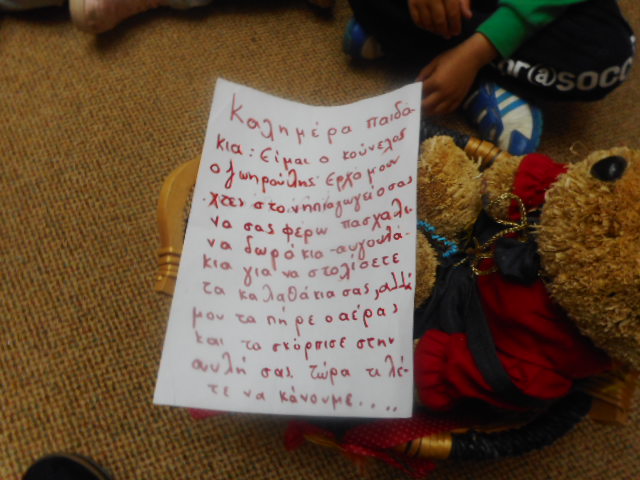 Καλημέρα παιδά-
κια: Είμαι ο κούνελος
ο ζωηρούλης. Ερχόμουν
χτες στο νηπιαγωγείο σας
να σας φέρω πασχαλι-
να δωράκια-αυγουλά-
κια για να στολίσετε
τα καλαθάκια σας, αλλά
μου τα πήρε ο αέρας
και τα σκόρπισε στην
αυλή σας. τώρα τι λέ-
τε να κάνουμε....
r(a)SOCC